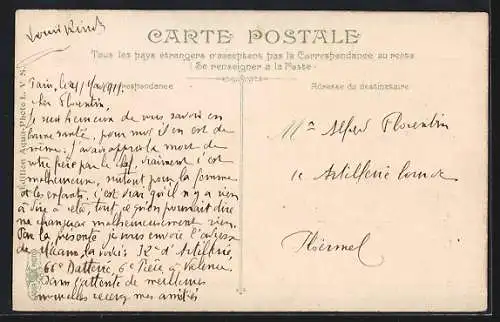 Louis
CARTE POSTALE
Tous les pays étrangers n'acceptent pas la Correspondance au recto
(Se renseigner à la Poste)
Correspondance
Adresse du destinataire
Paris, le
Cher Florentin,
Je suis heureux de vous savoir en
bonne santé, pour moi il en est de
même. J'avais appris la mort de
votre père par le chef, vraiment c'est
malheureux, surtout pour la femme
et les enfants, c'est vrai qu'il n'y a rien
à dire à cela, tout ce qu'on pourrait dire
ne changerait malheureusement rien.
Par la présente je vous envoie l'adresse
de la voici d'Artillerie
66e Batterie, 6e Pièce à Valence.
Dans l'attente de meilleures
nouvelles recevez mes amitiés
Alfred Florentin
Artillerie
Collection Aqua-Photo L. V. S.